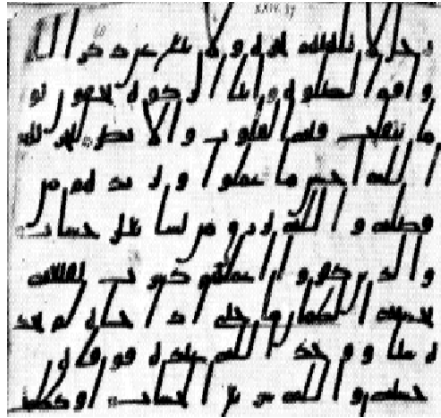 XXIV. 37
رجل لا تلهيهم تجره ولا بيع عن ذكر الله
واقم الصلوه وايتا الزكوه يخفون يو
ما تتقلب فيه القلوب والابصر ليجزيهم
الله احسن ما عملوا ويزيدهم من
فضله والله يرزق من يشا بغير حساب
والذين كفروا اعملهم كسرب بقيعه
يحسبه الظمان ما حتى اذا جاه لم يجد
ه شيا ووجد الله عنده فوفيه
حسبه والله سريع الحساب او كظلمت